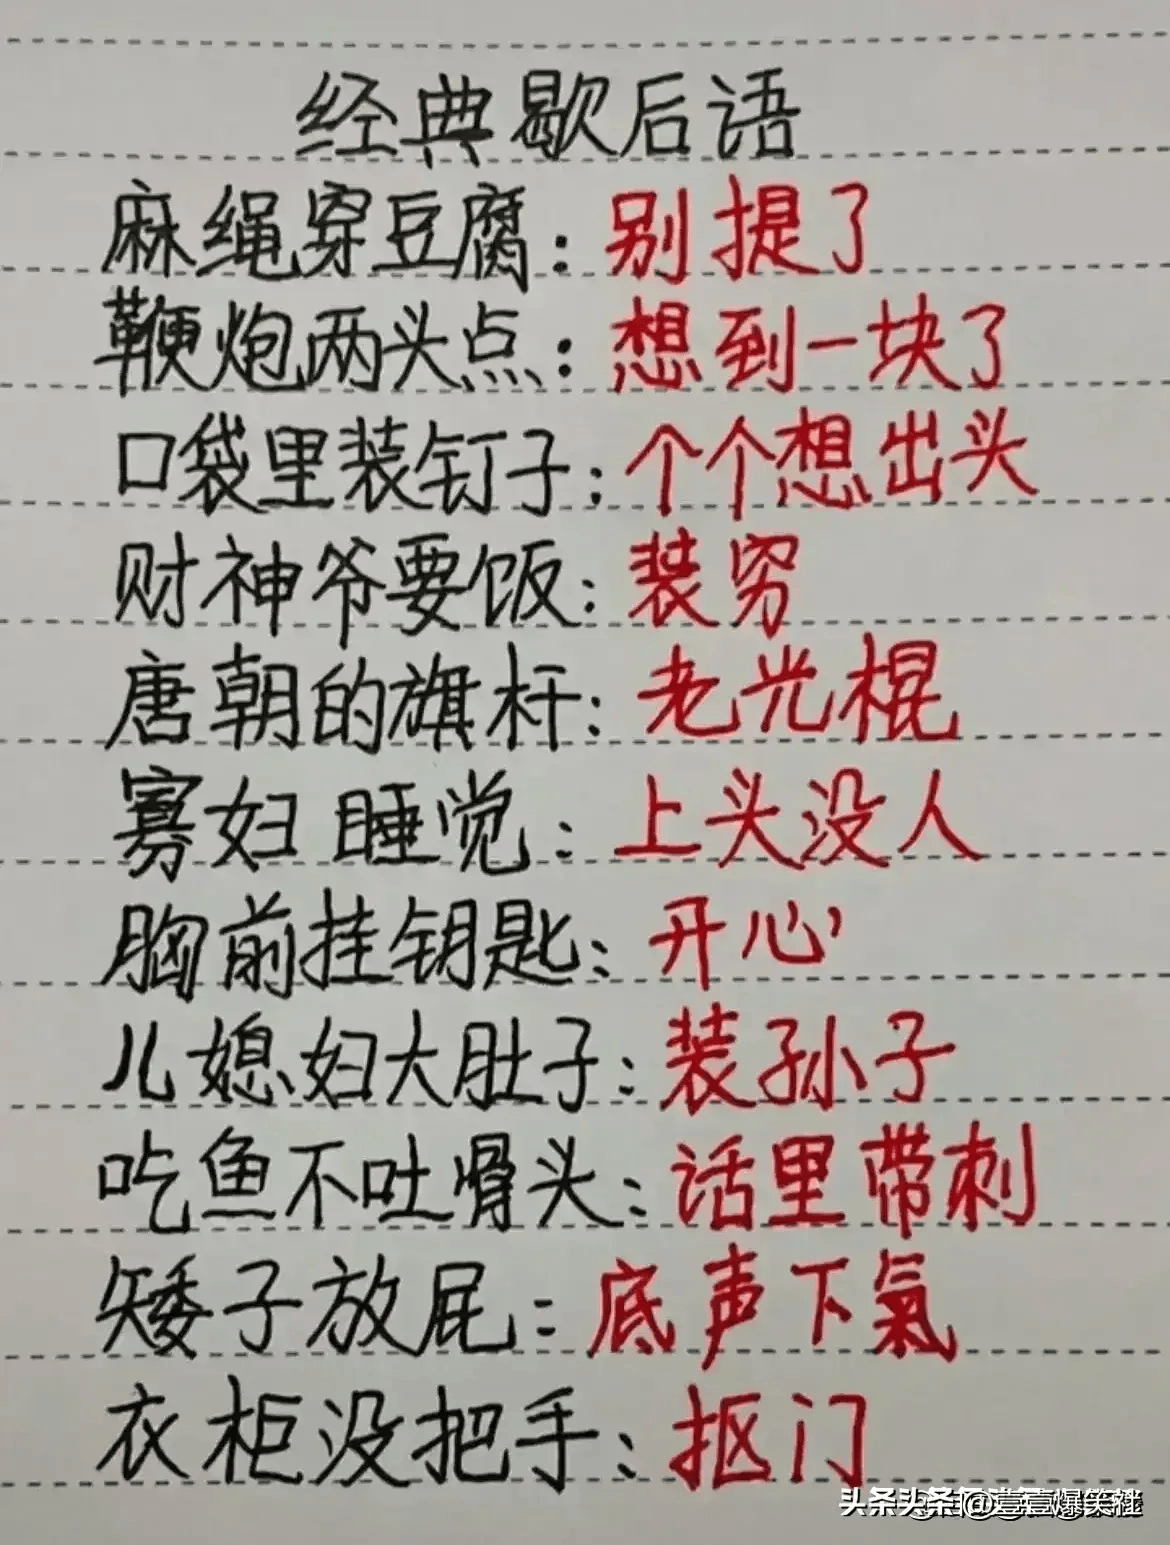 经典歇后语
麻绳穿豆腐：别提了
鞭炮两头点：想到一块了
口袋里装钉子；个个想出头
财神爷要饭：装穷
唐朝的旗杆：老光棍
寡妇睡觉：上头没人
胸前挂钥匙：开心
儿媳妇大肚子：装孙子
吃鱼不吐骨头：话里带刺
矮子放屁：底声下氣
衣柜没把手：抠门